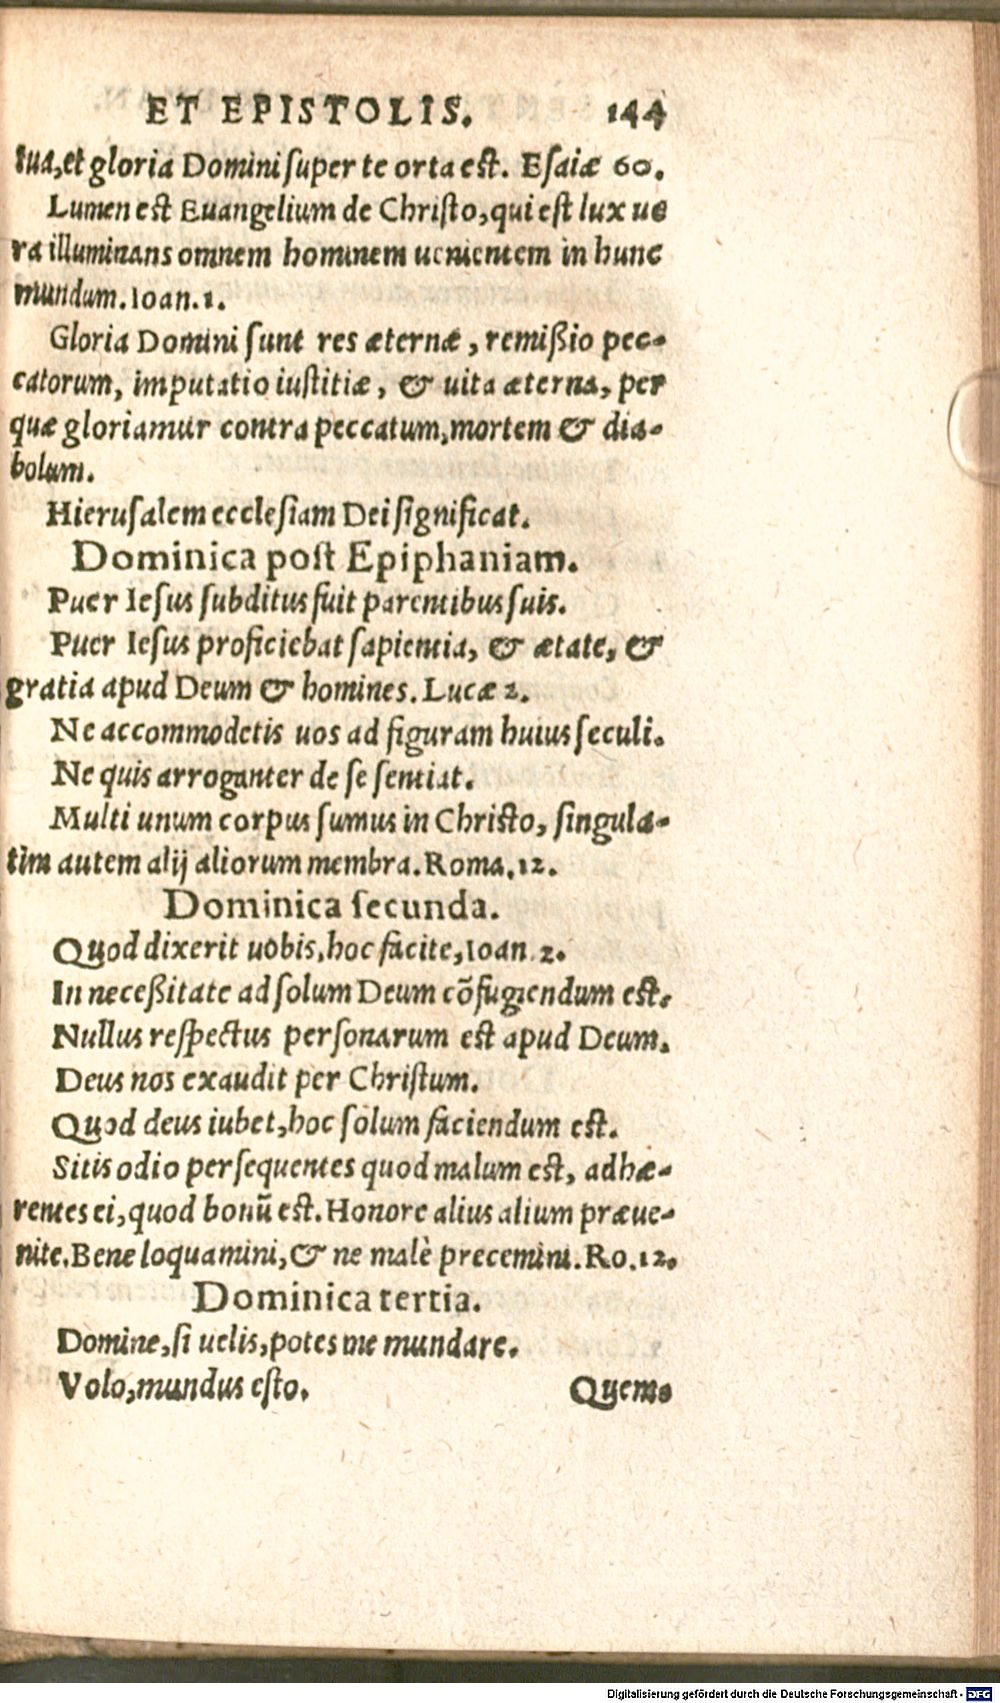 ET EPISTOLIS. 144
tua, et gloria Domini super te orta est. Esaiæ 60.
Lumen est Euangelium de Christo, qui est lux ue
ra illuminans omnem hominem uenientem in hunc
mundum. Ioan. 1.
Gloria Domini sunt res æternæ, remißio pec-
catorum, imputatio iustitiæ, & uita æterna, per
quæ gloriamur contra peccatum, mortem & dia-
bolum.
Hierusalem ecclesiam Dei significat.
Dominica post Epiphaniam.
Puer Iesus subditus fuit parentibus suis.
Puer Iesus proficiebat sapientia, & ætate, &
gratia apud Deum & homines. Lucæ 2.
Ne accommodetis uos ad figuram huius seculi.
Ne quis arroganter de se sentiat.
Multi unum corpus sumus in Christo, singula-
tim autem alij aliorum membra. Roma. 12.
Dominica secunda.
Quod dixerit uobis, hoc facite, Ioan. 2.
In neceßitate ad solum Deum cõfugiendum est.
Nullus respectus personarum est apud Deum.
Deus nos exaudit per Christum.
Quod deus iubet, hoc solum faciendum est.
Sitis odio persequentes quod malum est, adhæ-
rentes ei, quod bonũ est. Honore alius alium præue-
nite. Bene loquamini, & ne malè precemini. Ro. 12.
Dominica tertia.
Domine, si uelis, potes me mundare.
Volo, mundus esto. Quem-
Digitalisierung gefördert durch die Deutsche Forschungsgemeinschaft - DFG